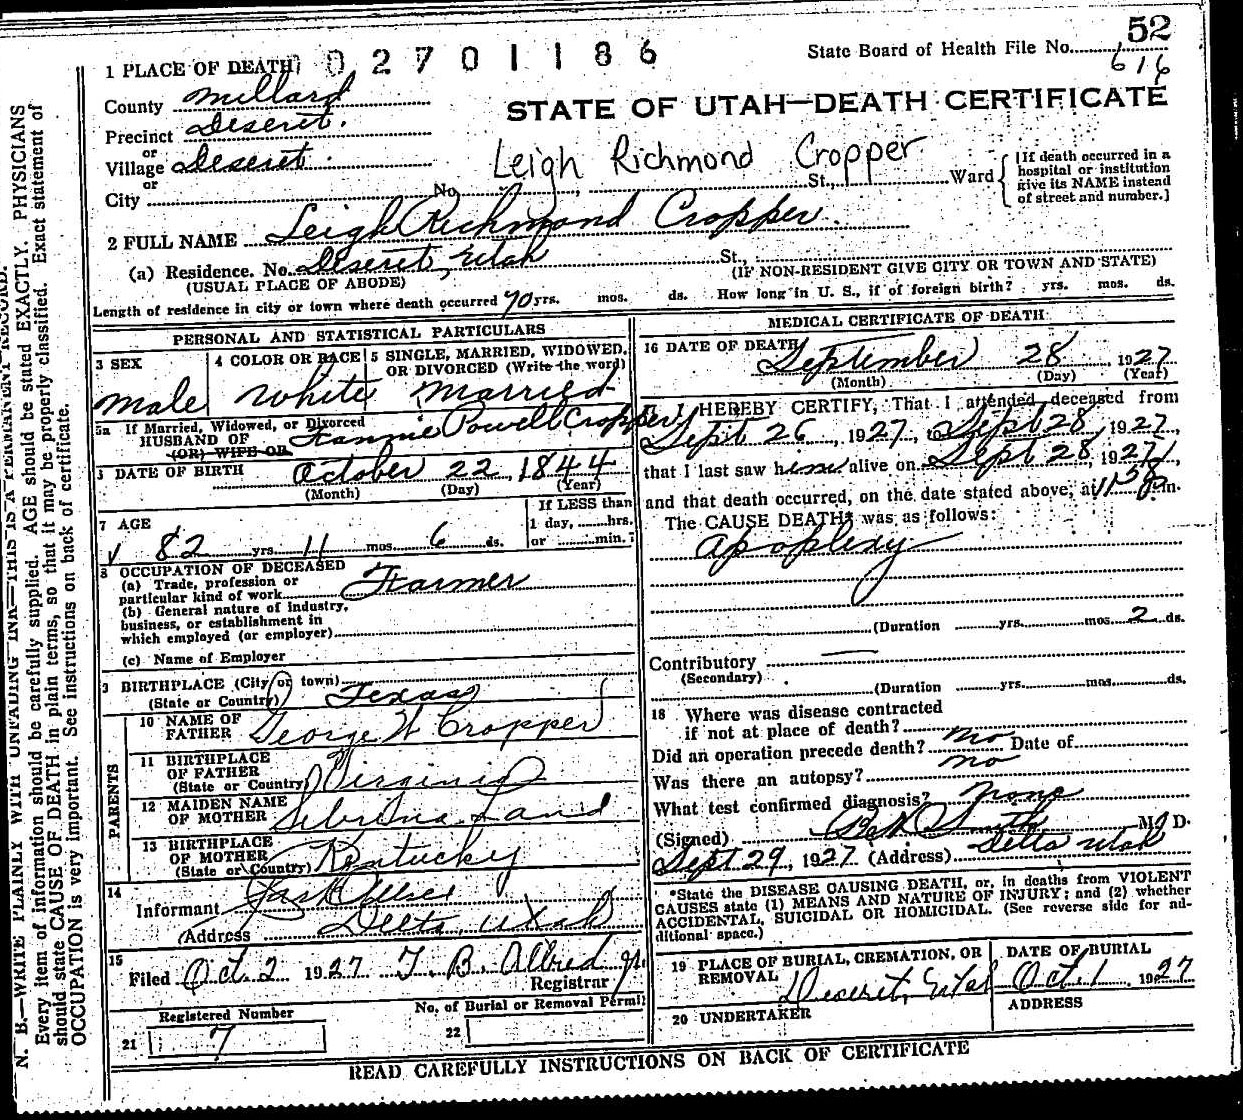 52
State Board of Health File No.
616
1 PLACE OF DEATH 02701186
County Millard
STATE OF UTAH—DEATH CERTIFICATE
Precinct Deseret.
or
Village Deseret.
or
Leigh Richmond Cropper
City No. , St., Ward
[If death occurred in a hospital or institution give its NAME instead of street and number.]
2 FULL NAME Leigh Richmond Cropper.
(a) Residence. No. Deseret, Utah St.,
(USUAL PLACE OF ABODE) (IF NON-RESIDENT GIVE CITY OR TOWN AND STATE)
Length of residence in city or town where death occurred 70 yrs. mos. ds. How long in U. S., if of foreign birth? yrs. mos. ds.
PERSONAL AND STATISTICAL PARTICULARS
3 SEX
Male
4 COLOR OR RACE
White
5 SINGLE, MARRIED, WIDOWED, OR DIVORCED (Write the word)
Married
5a If Married, Widowed, or Divorced
HUSBAND OF Fannie Powell Cropper
(OR) WIFE OR
DATE OF BIRTH October 22, 1844
(Month) (Day) (Year)
7 AGE
82 yrs. 11 mos. 6 ds.
If LESS than
1 day, hrs.
or min.?
8 OCCUPATION OF DECEASED
(a) Trade, profession or
particular kind of work Farmer
(b) General nature of industry,
business, or establishment in
which employed (or employer)
(c) Name of Employer
BIRTHPLACE (City or town)
(State or Country) Texas
PARENTS
10 NAME OF FATHER George W Cropper
11 BIRTHPLACE OF FATHER
(State or Country) Virginia
12 MAIDEN NAME OF MOTHER Sebrina Land
13 BIRTHPLACE OF MOTHER
(State or Country) Kentucky
14
Informant
(Address Delta, Utah
15
Filed Oct. 2 1927 T. B. Allred Jr.
Registrar
Registered Number
21 7
No. of Burial or Removal Permit
22
MEDICAL CERTIFICATE OF DEATH
16 DATE OF DEATH
September 28 1927
(Month) (Day) (Year)
I HEREBY CERTIFY, That I attended deceased from
Sept 26, 1927, to Sept 28, 1927,
that I last saw him alive on Sept 28, 1927,
and that death occurred, on the date stated above, at 11 58 p.m.
The CAUSE DEATH* was as follows:
apoplexy
(Duration yrs. mos. 2 ds.
Contributory
(Secondary)
(Duration yrs. mos. ds.
18 Where was disease contracted
if not at place of death?
Did an operation precede death? no Date of
Was there an autopsy? no
What test confirmed diagnosis? none
(Signed) Smith M. D.
Sept 29, 1927. (Address) Delta Utah
*State the DISEASE CAUSING DEATH, or, in deaths from VIOLENT
CAUSES state (1) MEANS AND NATURE OF INJURY; and (2) whether
ACCIDENTAL, SUICIDAL OR HOMICIDAL. (See reverse side for ad-
ditional space.)
19 PLACE OF BURIAL, CREMATION, OR REMOVAL
Deseret, Utah
DATE OF BURIAL
Oct. 1 1927
20 UNDERTAKER
ADDRESS
READ CAREFULLY INSTRUCTIONS ON BACK OF CERTIFICATE
N. B.—WRITE PLAINLY WITH UNFADING INK—THIS IS A PERMANENT RECORD.
Every item of information should be carefully supplied. AGE should be stated EXACTLY. PHYSICIANS
should state CAUSE OF DEATH in plain terms, so that it may be properly classified. Exact statement of
OCCUPATION is very important. See instructions on back of certificate.